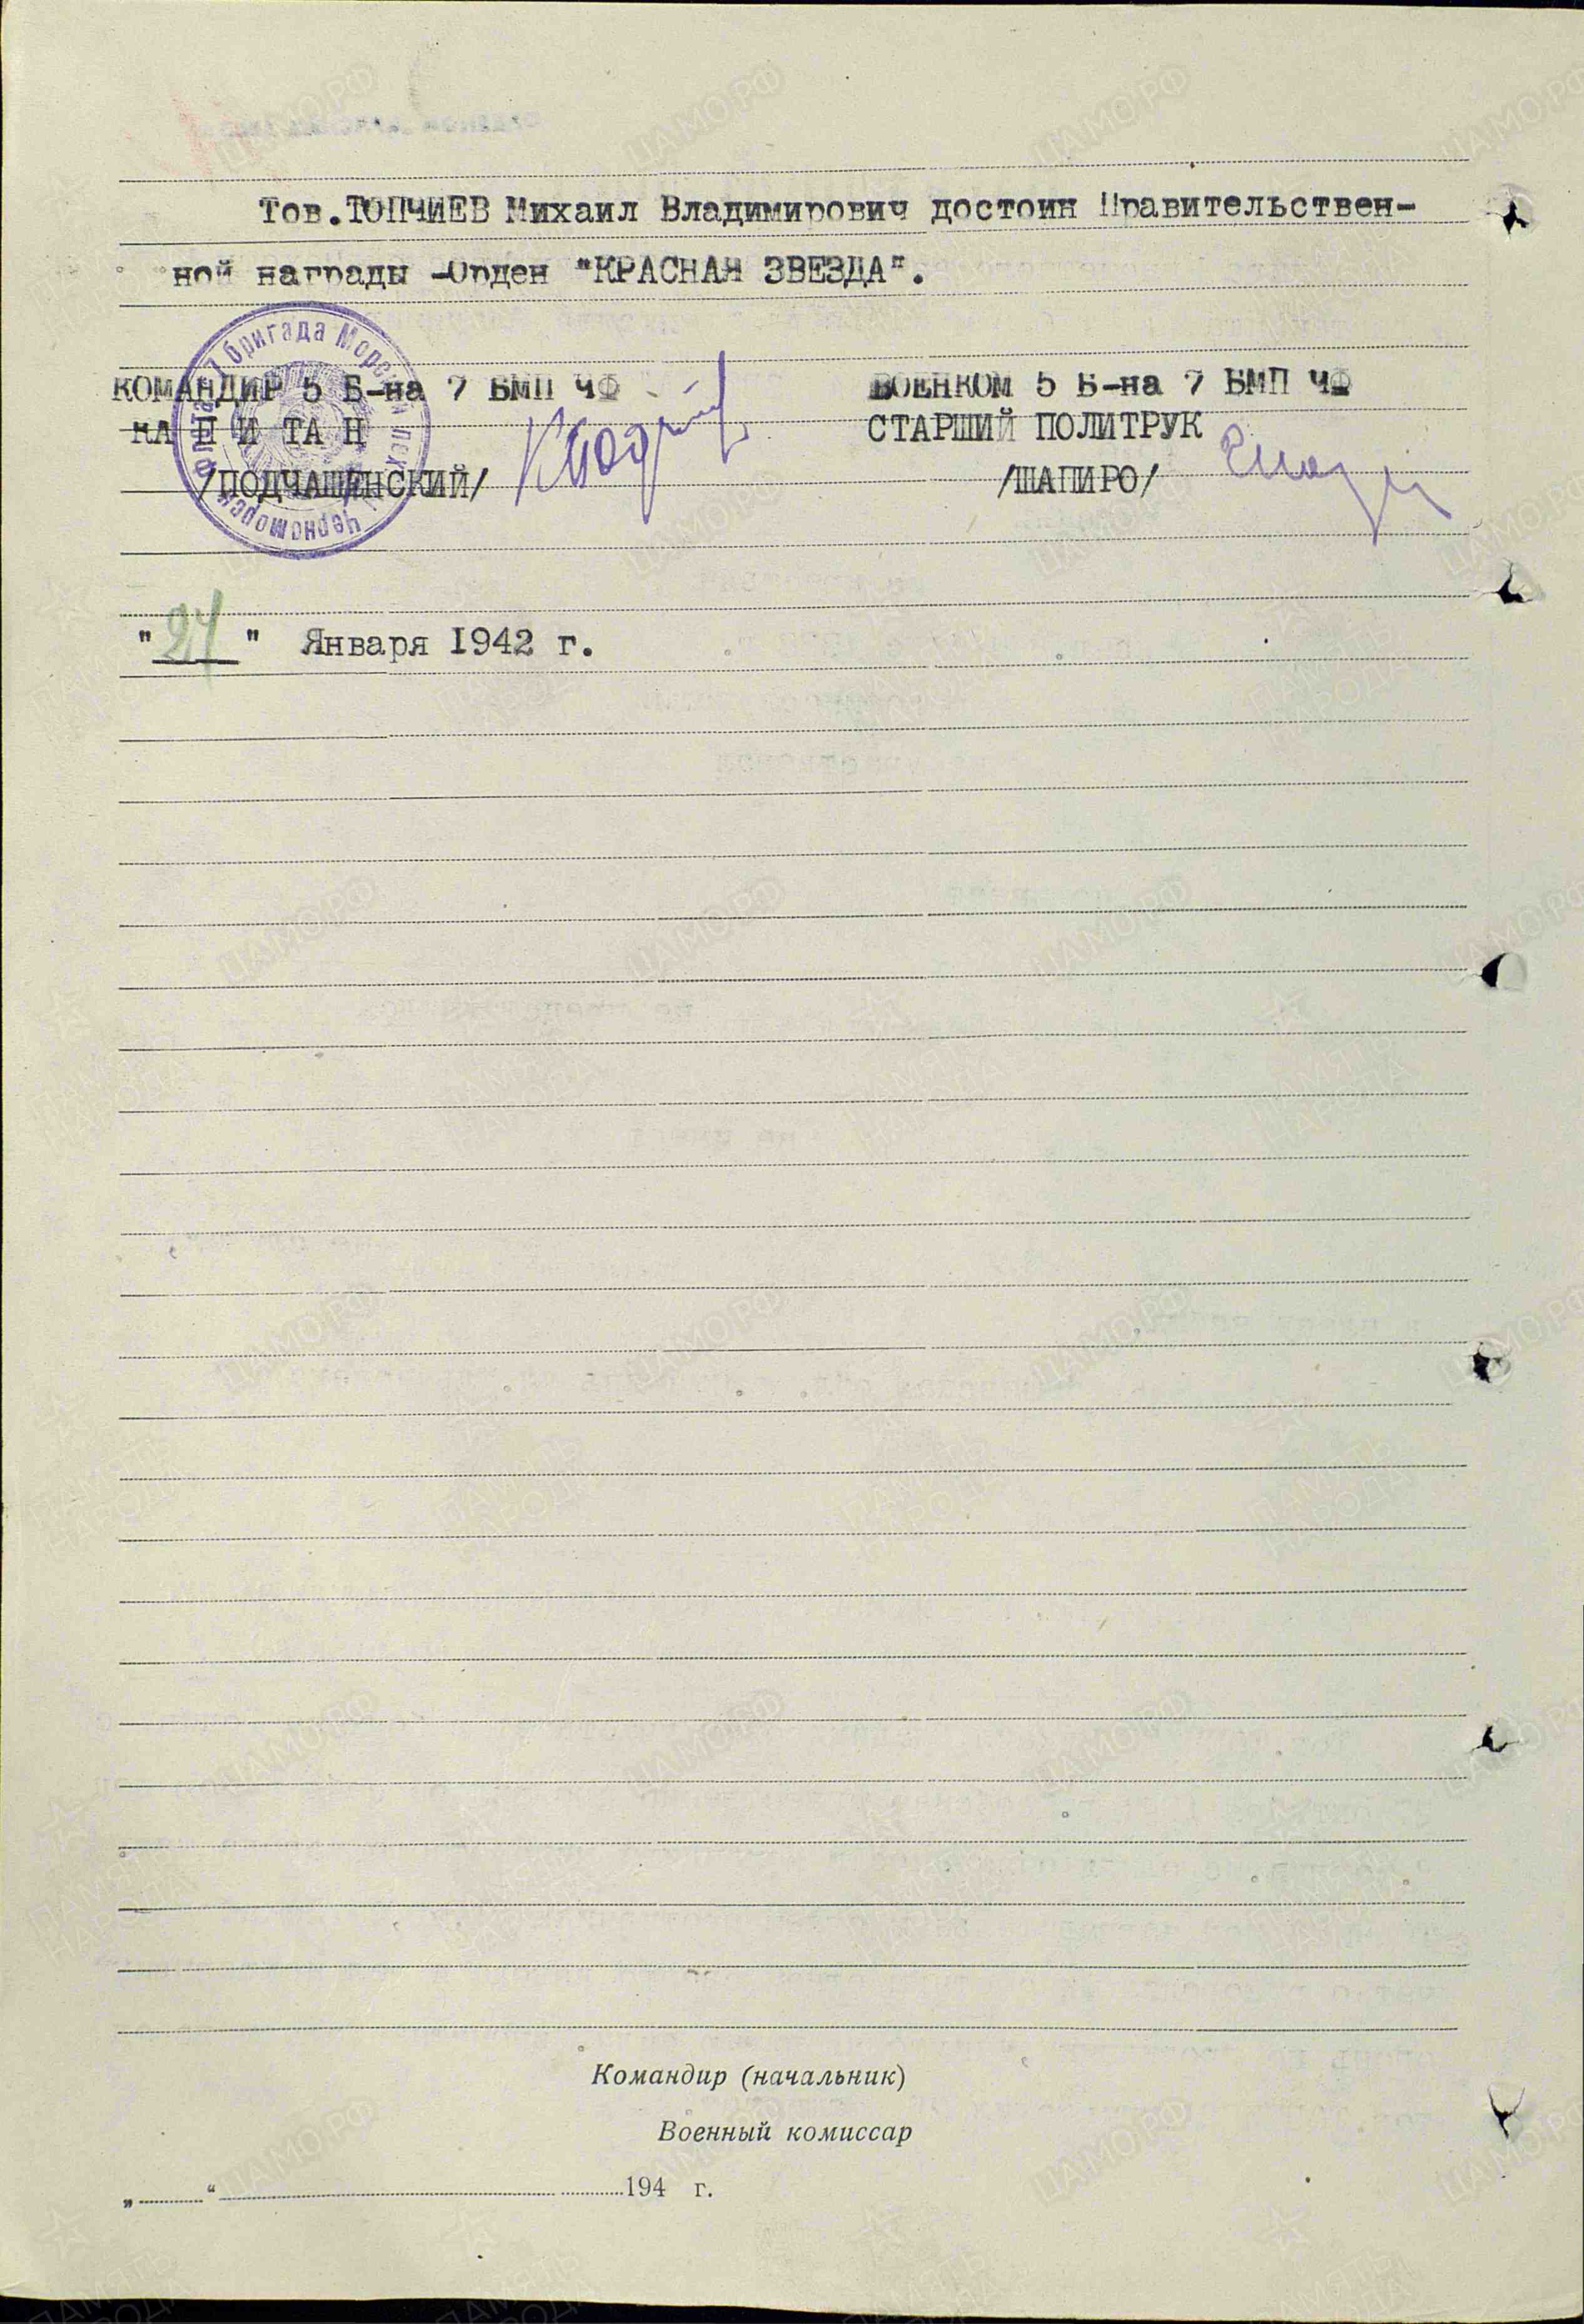 Тов.ТОПЧИЕВ Михаил Владимирович достоин Правительствен-
ной награды -Орден "КРАСНАЯ ЗВЕЗДА".
КОМАНДИР 5 Б-на 7 БМП ЧФ
КАПИТАН
/ПОДЧАШЕНСКИЙ/
ВОЕНКОМ 5 Б-на 7 БМП ЧФ
СТАРШИЙ ПОЛИТРУК
/ШАПИРО/
7 бригада Морск
Черноморск
флота
" " Января 1942 г.
Командир (начальник)
Военный комиссар
„ “ 194 г.
ЦАМО.РФ
ПАМЯТЬ НАРОДА